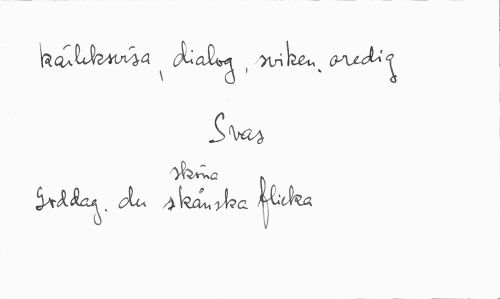 kärleksvisa, dialog, sviken, oredig
Svar
sköna
Goddag, du skånska flicka